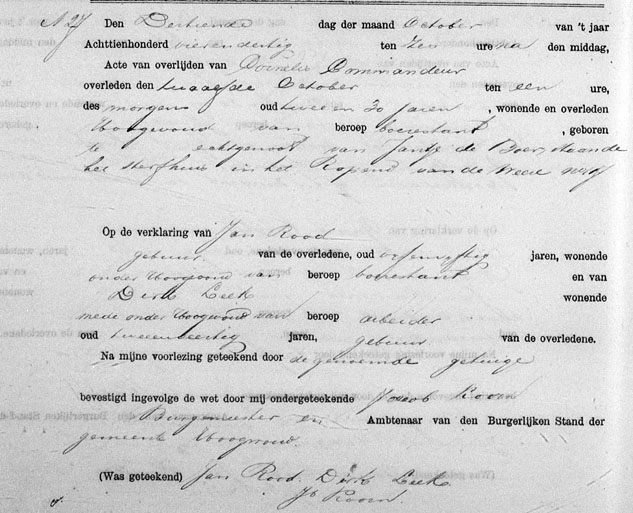 N 27 Den Dertiende dag der maand October van 't jaar
Achttienhonderd vierendertig ten tien ure na den middag,
Acte van overlijden van Cornelis Commandeur
overleden den twaalfde October ten een ure,
des morgens oud twee en 30 jaren, wonende en overleden
Hoogwoud van beroep boerestant, geboren
te echtgenoot van Jantje de Boer, staande
het sterfhuis in het Kopend van de Weere
Op de verklaring van Jan Rood
gebuur van de overledene, oud vijfenvijftig jaren, wonende
onder Hoogwoud van beroep boerestant en van
Dirk Leek wonende
mede onder Hoogwoud van beroep arbeider
oud tweeenveertig jaren, gebuur van de overledene.
Na mijne voorlezing geteekend door de genoemde getuige
bevestigd ingevolge de wet door mij ondergeteekende Jacob Koorn
Burgemeester en Ambtenaar van den Burgerlijken Stand der
gemeente Hoogwoud.
(Was geteekend) Jan Rood. Dirk Leek
Jb Koorn.